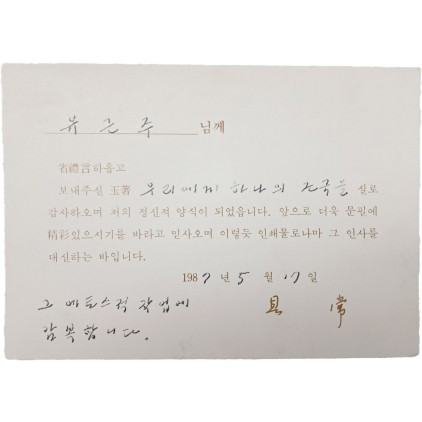 유근주 님께
省禮言하옵고
보내주신 玉著 우리에게 하나의 조국을 실로
감사하오며 저의 정신적 양식이 되었읍니다. 앞으로 더욱 문필에
精彩있으시기를 바라고 믿사오며 이렇듯 인쇄물로나마 그 인사를
대신하는 바입니다.
1987년 5월 17일
그 마토스적 작업에
具 常
감복합니다.